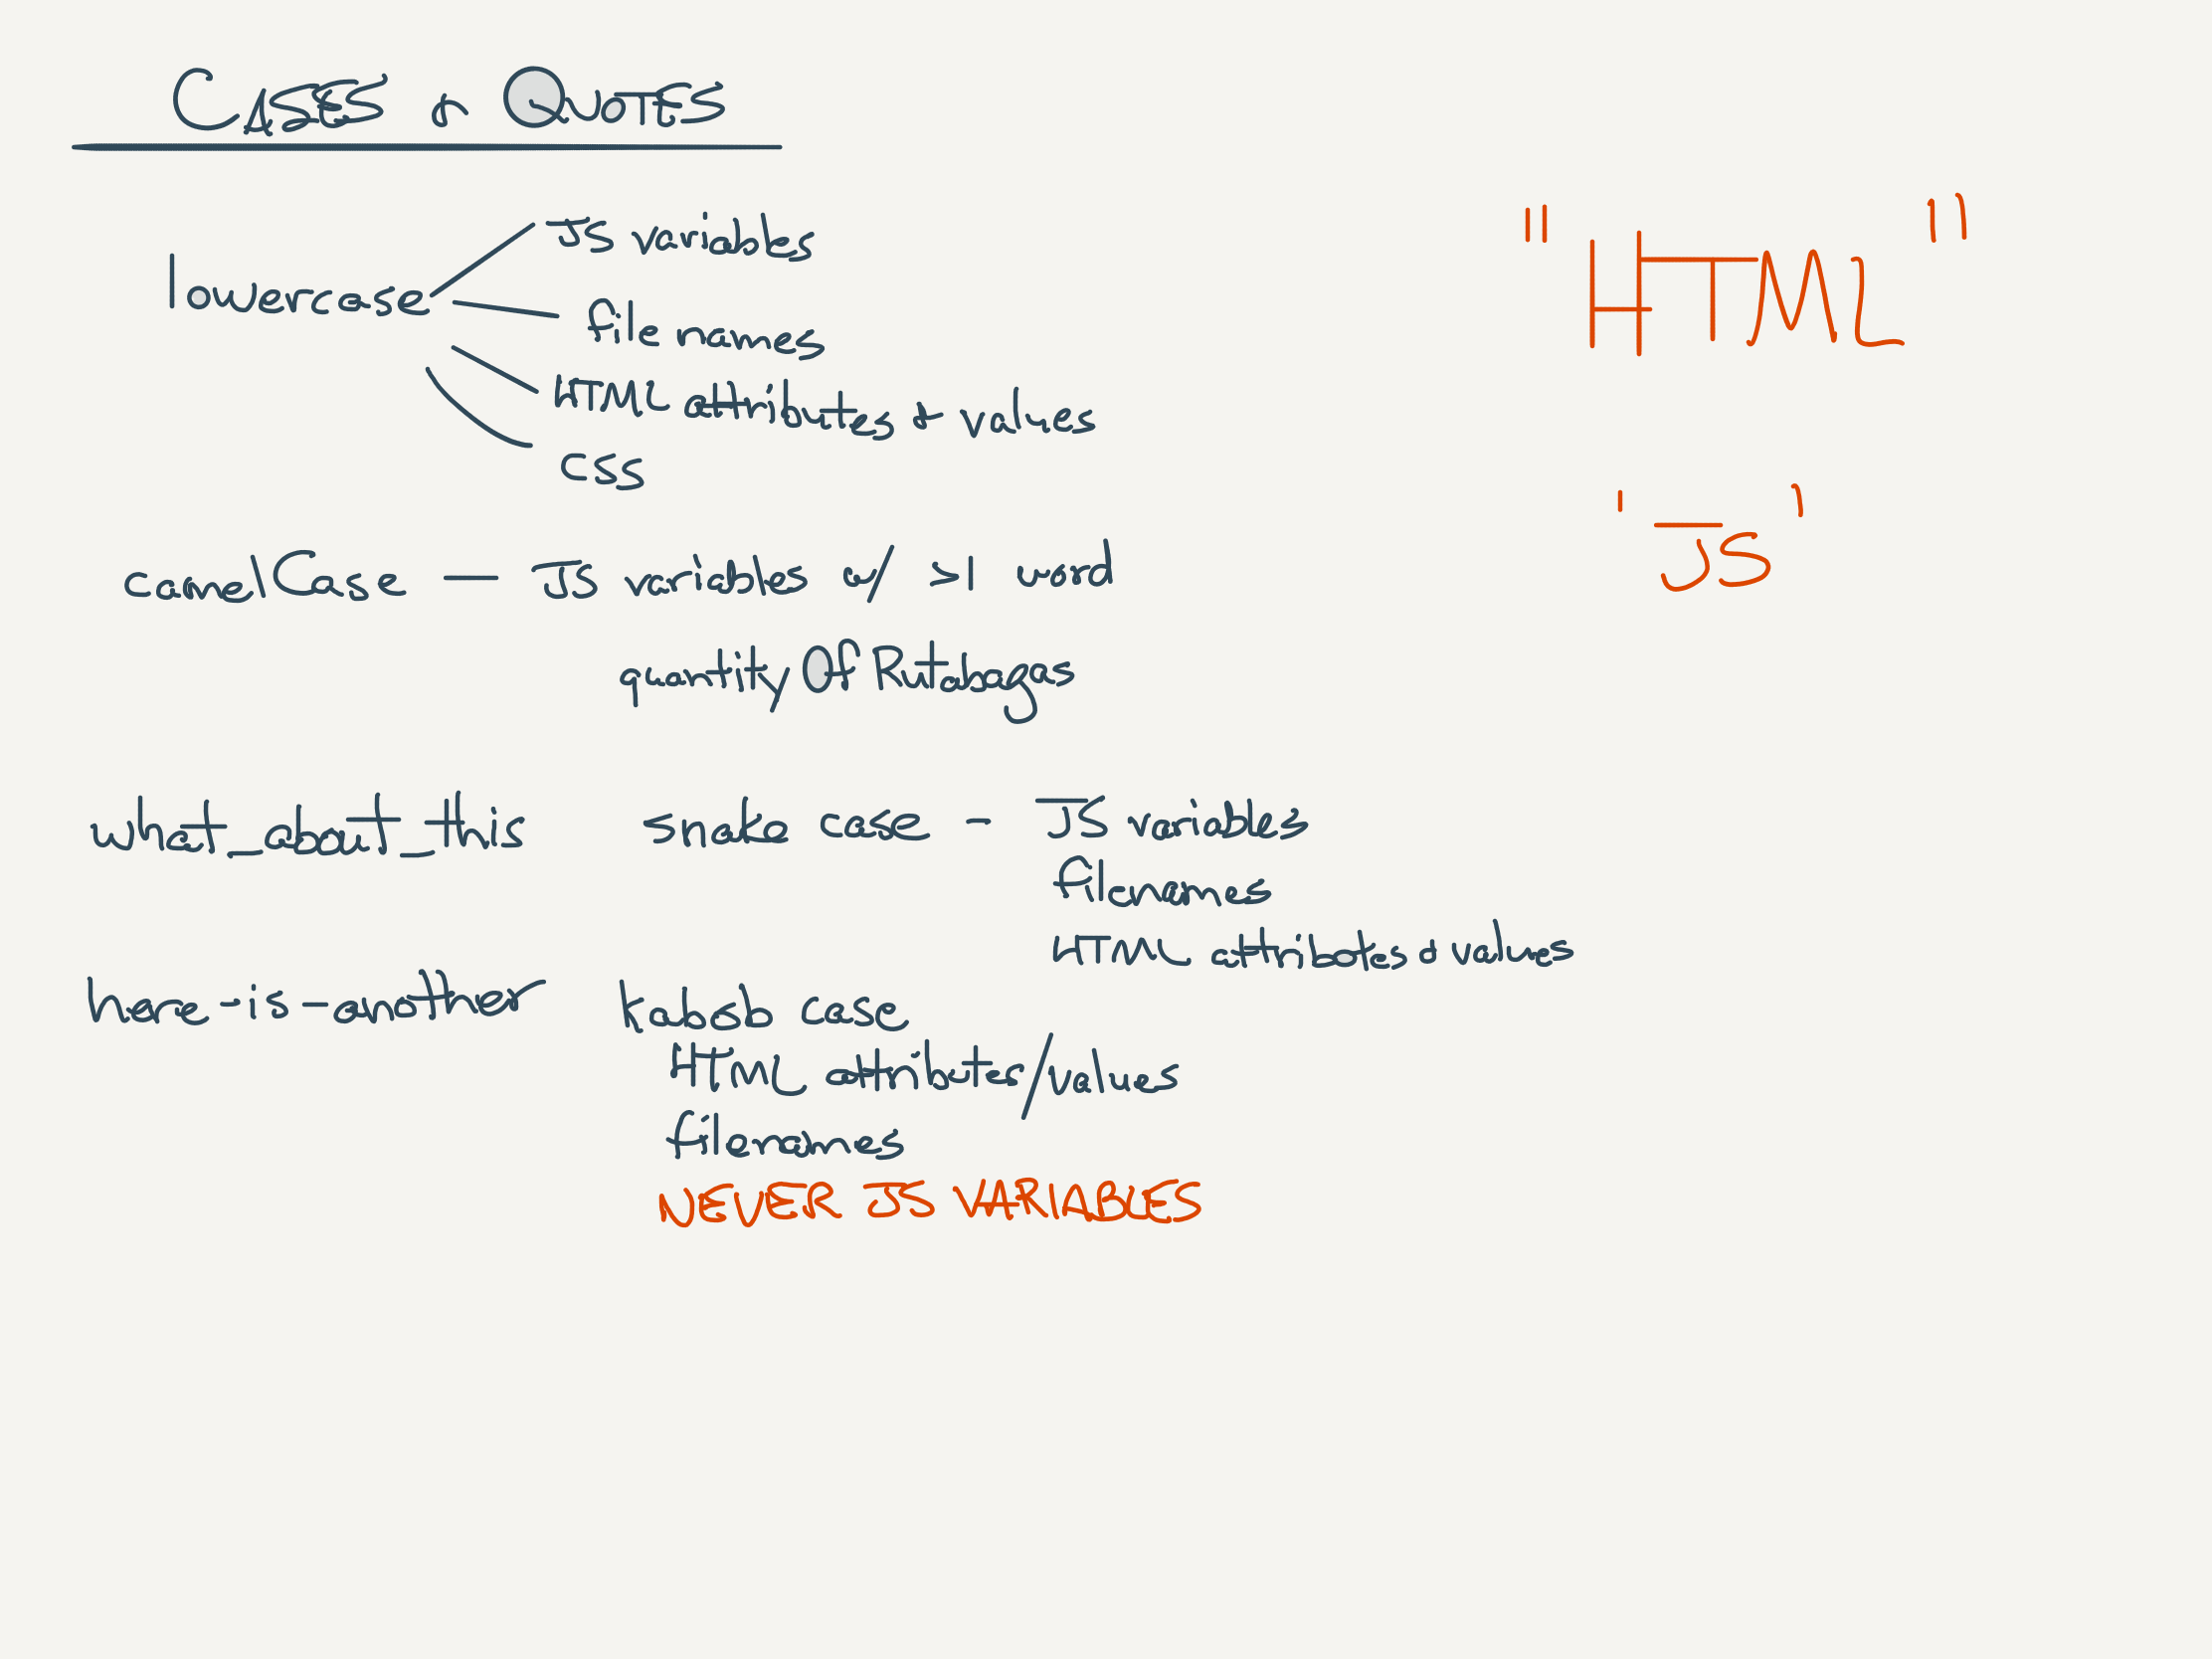 CASES & QUOTES
lowercase
JS variables
file names
HTML attributes & values
CSS
"HTML"
'JS'
camelCase — JS variables w/ >1 word
quantityOfRutabagas
what_about_this snake case - JS variables
filenames
HTML attributes & values
here-is-another kabob case
HTML attributes/values
filenames
NEVER JS VARIABLES